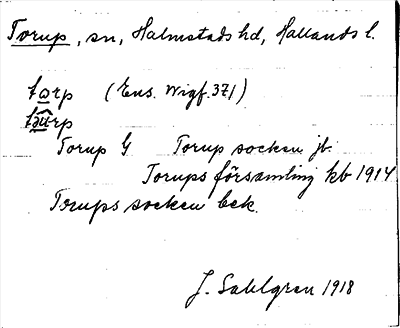 Torup, sn, Halmstads hd, Hallands l.
tɷrp (Ens. Wigf. 371)
Torup G Torup socken jb.
Torups församling kb 1914
Torups socken bek.
J. Sahlgren 1918